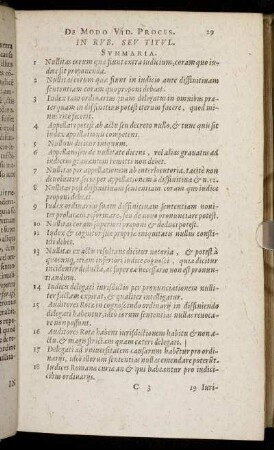 DE MODO VID. PROCES. 29
IN RVB. SEV TITVL.
SVMMARIA.
1 Nullitas eorum quæ fiunt extra iudicium, coram quo iu-
dice sit proponenda.
2 Nullitas eorum quæ fiunt in iudicio ante diffinitiuam
sententiam coram quo proponi debeat.
3 Index tam ordinarius quam delegatus in omnibus præ-
ter quam in diffinitiua potest suum facere, quod mi-
nus rite fuerit.
4 Appellari potest ab actu seu decreto nullo, & tunc quis sit
iudex appellationis competens.
5 Nullum dicitur iniquum.
6 Appellans seu de nullitate dicens, vel alias grauatus ad
iudicem grauantem remitti non debet.
7 Nullitas per appellationem ab interlocutoria, tacitè non
deuoluitur, secus in appellatione à diffinitiua & nu. 12.
8 Nullitas post diffinitiuam sententiam coram quo iudice
proponi debeat.
9 Index ordinarius suam diffinitiuam sententiam nouiter
prolatam, reformare, seu de nouo pronunciare potest.
10 Nullitas coram superiori proponi & deduci potest.
11 Index & cognitor seu propria iniquitatis nullus consti-
tui debet.
12 Nullitas ex actu resultans dicitur notoria, & potest à
quocunque, etiam inferiori iudice cognosci, quia dicitur
incidenter deducta, ac super ea necessario non est pronun-
tiandum.
14 Iudicis delegati iurisdictio per pronunciationem nulli-
ter factam expirat, & qualiter intelligatur.
15 Auditores Rotæ in cognoscendo ordinarij in diffiniendo
delegati habentur, ideo eorum sententias nullas reuoca-
re non possunt.
16 Auditores Rotæ habent iurisdictionem habitu & non a-
ctu, & magistri citam quam cæteri delegati.
17 Delegati ad vniuersitatem causarum habetur pro ordi-
narijs, ideo illorum sententias nullas emendare poterūt.
18 Iudices Romana curia an & qui habeantur pro indici-
bus ordinarijs.
C 3 19 Iuri-